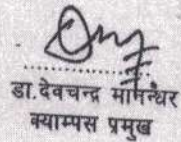 डा.देवचन्द्र मानन्धर
क्याम्पस प्रमुख